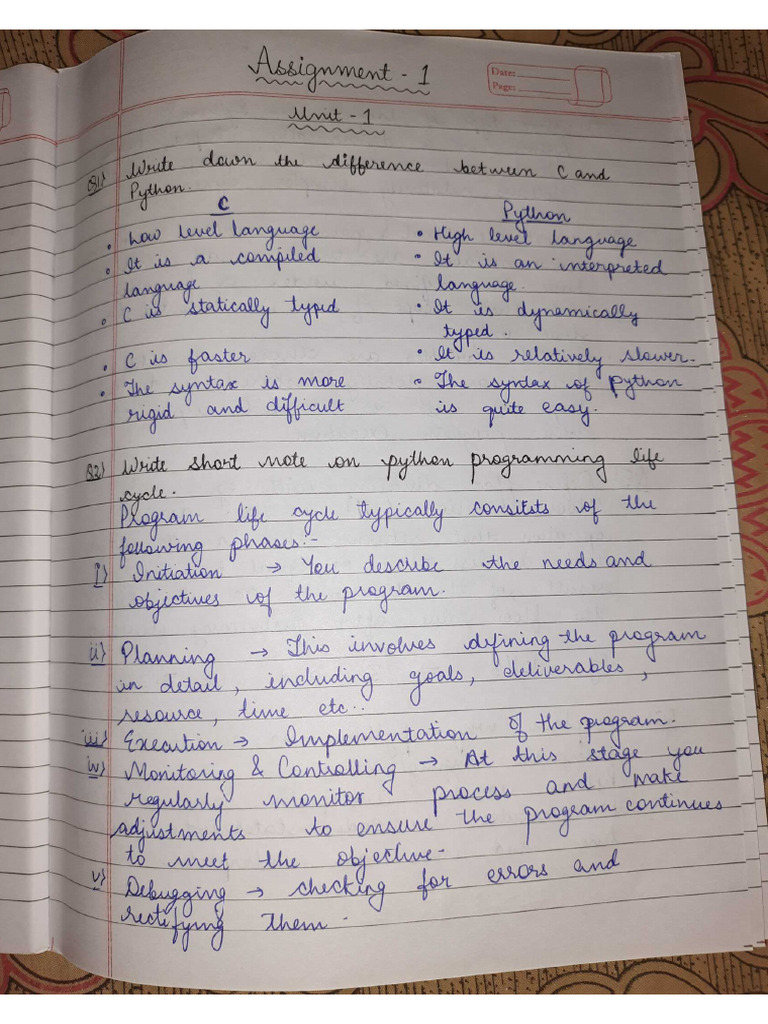 Assignment - 1
Date:
Page:
Unit - 1
Q1) Write down the difference between C and
Python.
C Python
• Low level language • High level language
• It is a compiled • It is an interpreted
language language.
• C is statically typed • It is dynamically
typed.
• C is faster • It is relatively slower.
• The syntax is more • The syntax of python
rigid and difficult is quite easy.
Q2) Write short note on python programming life
cycle.
Program life cycle typically consitsts of the
following phases:-
i) Initiation → You describe the needs and
objectives of the program.
ii) Planning → This involves defining the program
in detail, including goals, deliverables,
resource, time etc..
iii) Execution → Implementation of the program.
iv) Monitoring & Controlling → At this stage you
regularly monitor process and make
adjustments to ensure the program continues
to meet the objective-
v) Debugging → checking for errors and
rectifying them.